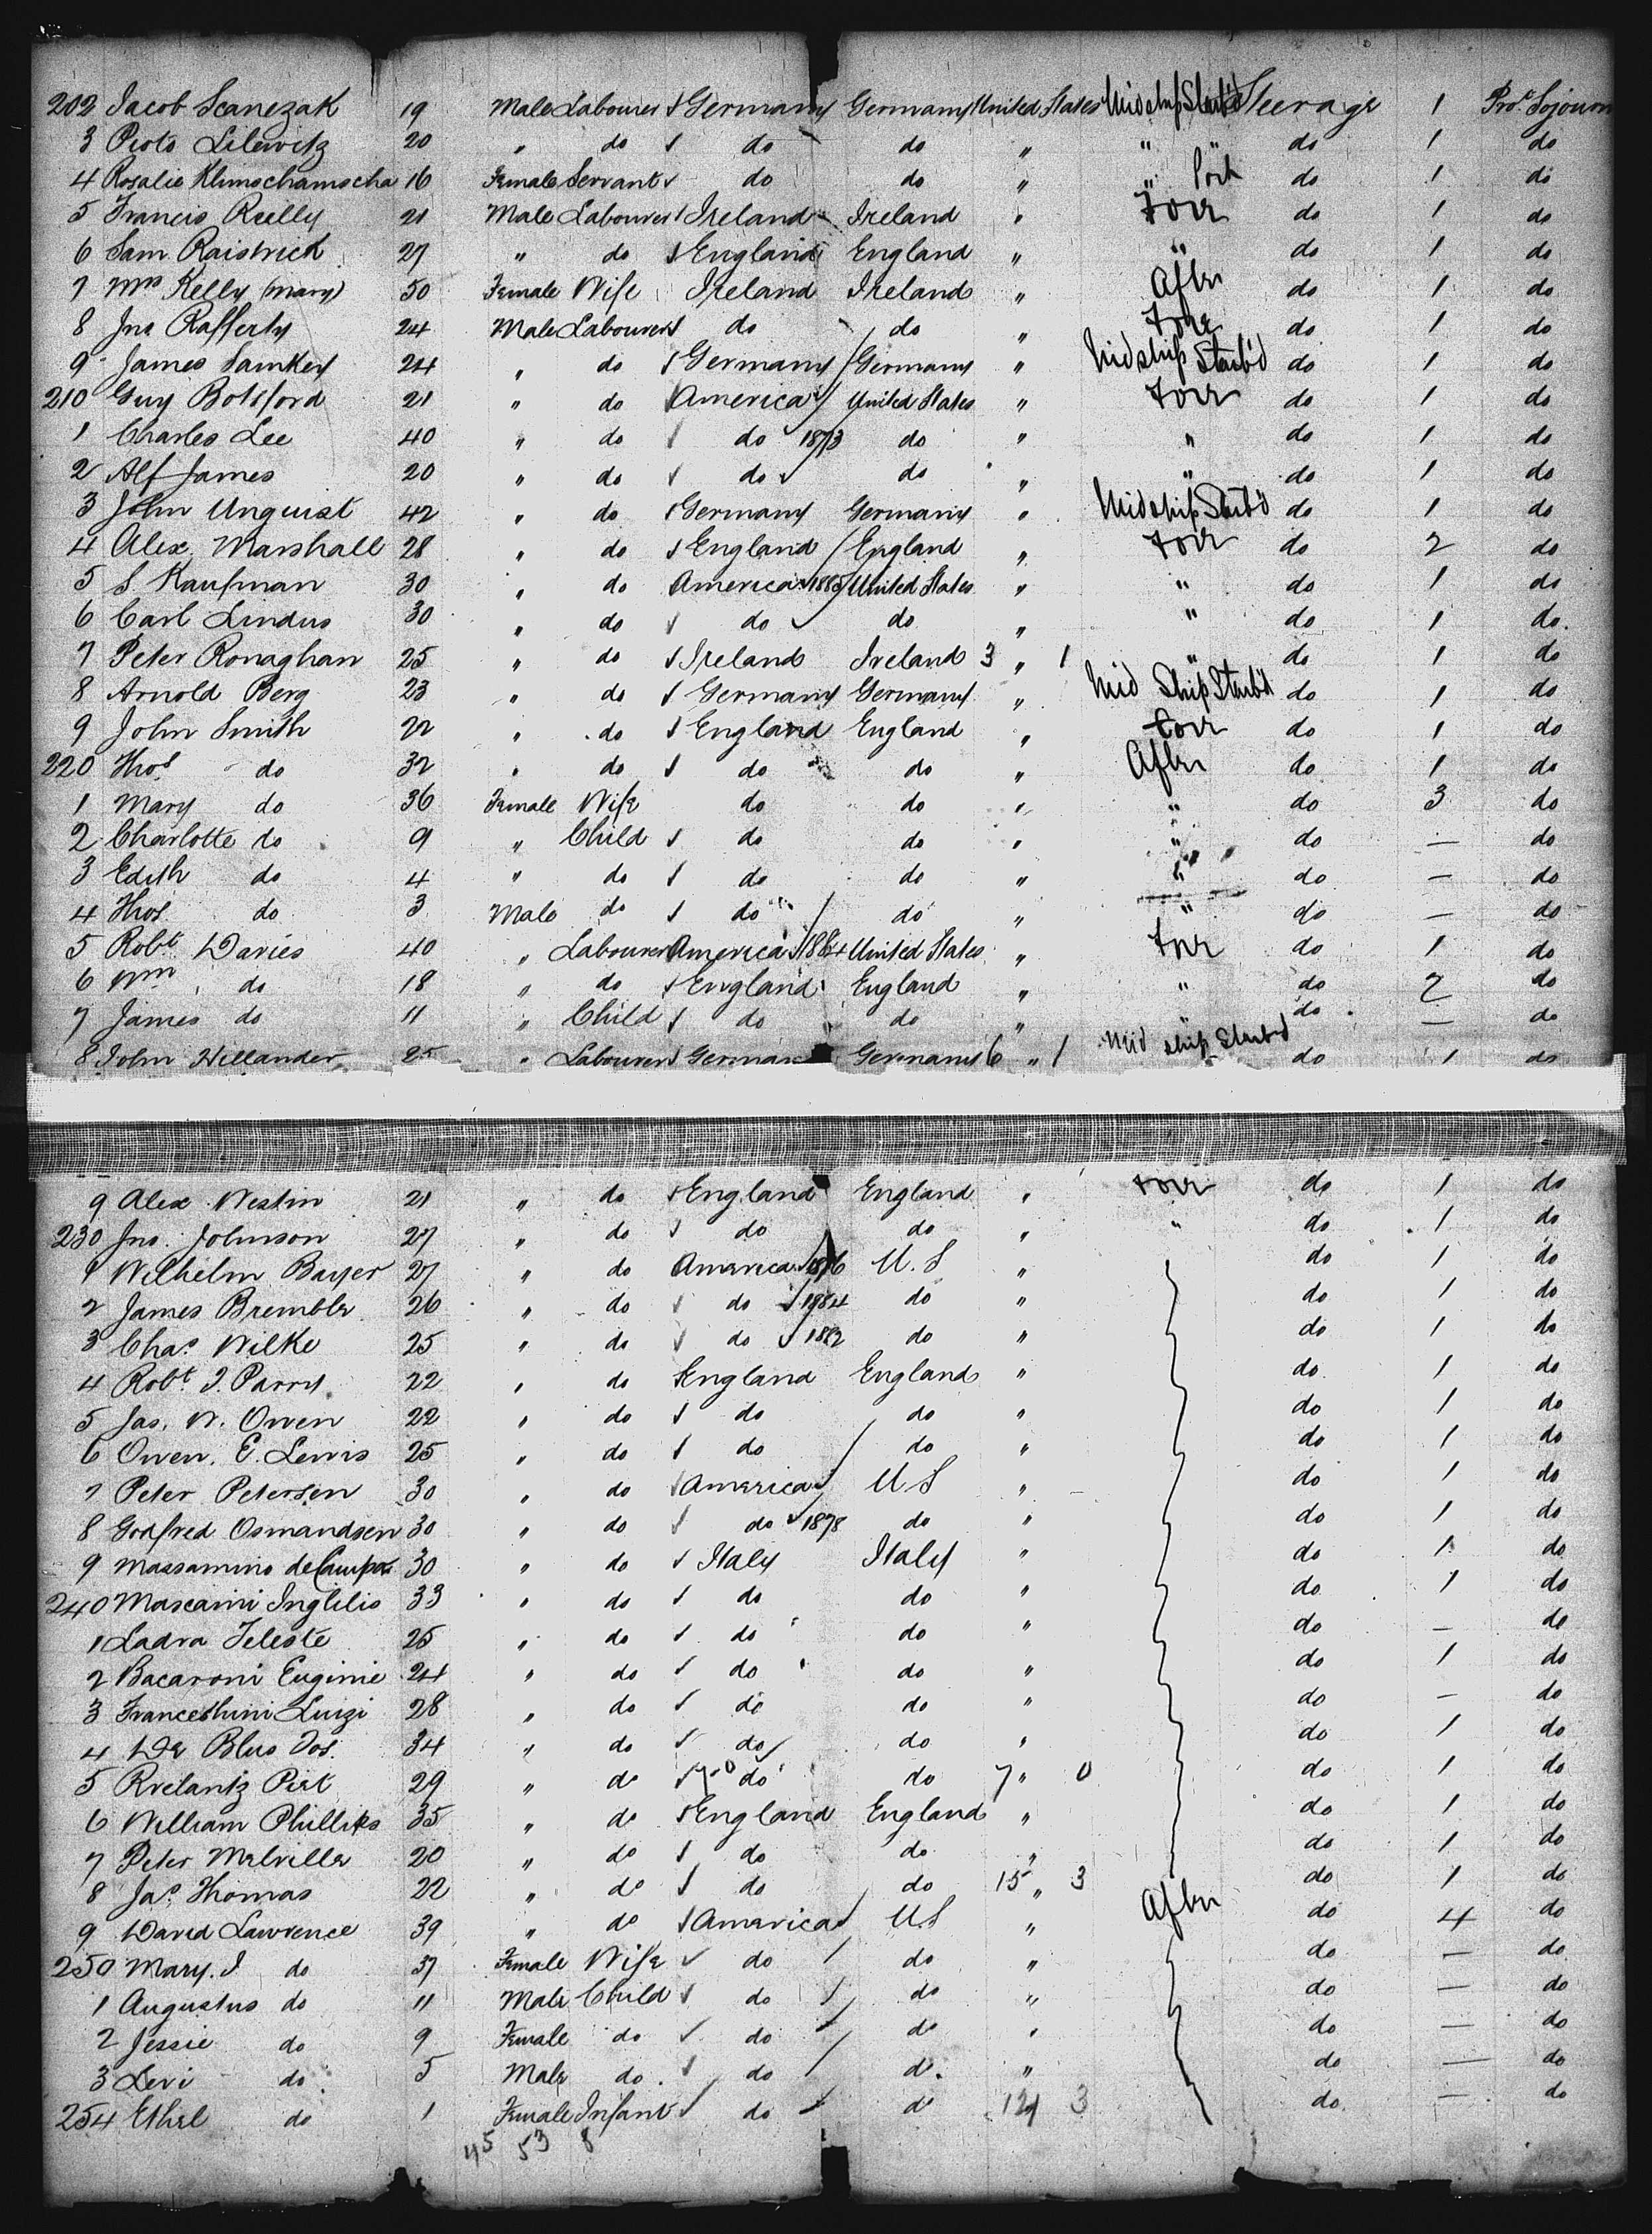 202 Jacob Scanezak 19 Male Labourer Germany Germany United States Midship Starb'd Steerage 1 Pro. Sojourn
3 Pioto Lilewitz 20 " do do do " " " do 1 do
4 Rosalie Klimschamscha 16 Female Servant do do " " Port do 1 do
5 Francis Reilly 21 Male Labourer Ireland Ireland " Forr do 1 do
6 Sam Raistrick 27 " do England England " " do 1 do
7 Mrs Kelly (Mary) 50 Female Wife Ireland Ireland " After do 1 do
8 Jno Rafferty 24 Male Labourer do do " Forr do 1 do
9 James Samkey 24 " do Germany Germany " Midship Starb'd do 1 do
210 Guy Botsford 21 " do America United States " Forr do 1 do
1 Charles Lee 40 " do do 1873 do " " do 1 do
2 Alf James 20 " do do do " " do 1 do
3 John Unquist 42 " do Germany Germany " Midship Starb'd do 1 do
4 Alex. Marshall 28 " do England England " Forr do 2 do
5 S Kaufman 30 " do America 1885 United States " " do 1 do
6 Carl Lindus 30 " do do do " " do 1 do.
7 Peter Ronaghan 25 " do Ireland Ireland 3 " 1 " do 1 do
8 Arnold Berg 23 " do Germany Germany " Mid Ship Starb'd do 1 do
9 John Smith 22 " do England England " Forr do 1 do
220 Thos do 32 " do do do " After do 1 do
1 Mary do 36 Female Wife do do " " do 3 do
2 Charlotte do 9 " Child do do " " do — do
3 Edith do 4 " do do do " " do — do
4 Thos do 3 Male do do do " " do — do
5 Robt Davies 40 " Labourer America 1884 United States " Forr do 1 do
6 Wm do 18 " do England England " " do 2 do
7 James do 11 " Child do do " " do — do
8 John Hillander 25 " Labourer German Germany 6 " 1 Mid ship Starb'd do 1 do
9 Alex Westin 21 " do England England " Forr do 1 do
230 Jno. Johnson 27 " do do do " " do 1 do
1 Wilhelm Bayer 27 " do America 1876 U.S " do 1 do
2 James Brembler 26 " do do 1884 do " do 1 do
3 Chas Wilke 25 " do do 1882 do " do 1 do
4 Robt J. Parry 22 " do England England " do 1 do
5 Jas. W. Owen 22 " do do do " do 1 do
6 Owen. E. Lewis 25 " do do do " do 1 do
7 Peter Petersen 30 " do America U S " do 1 do
8 Godfred Osmandsen 30 " do do 1878 do " do 1 do
9 Massamino de Campo 30 " do Italy Italy " do 1 do
240 Mascaini Inglilio 33 " do do do " do 1 do
1 Ladra Teleste 25 " do do do " do — do
2 Bacaroni Euginie 24 " do do do " do 1 do
3 Franceshini Luigi 28 " do do do " do — do
4 De Blus Jos. 34 " do do do " do 1 do
5 Rvelantz Piet 29 " do do do 7 " 0 do 1 do
6 William Phillips 35 " do England England " do 1 do
7 Peter Melville 20 " do do do " do 1 do
8 Jas Thomas 22 " do do do 15 " 3 do 1 do
9 David Lawrence 39 " do America U.S " After do 4 do
250 Mary. J. do 37 Female Wife do do " do — do
1 Augustus do 11 Male Child do do " do — do
2 Jessie do 9 Female do do do " do — do
3 Levi do 5 Male do. do do. " do — do
254 Ethel do 1 Female Infant do do 12 " 3 do — do
45 53 8